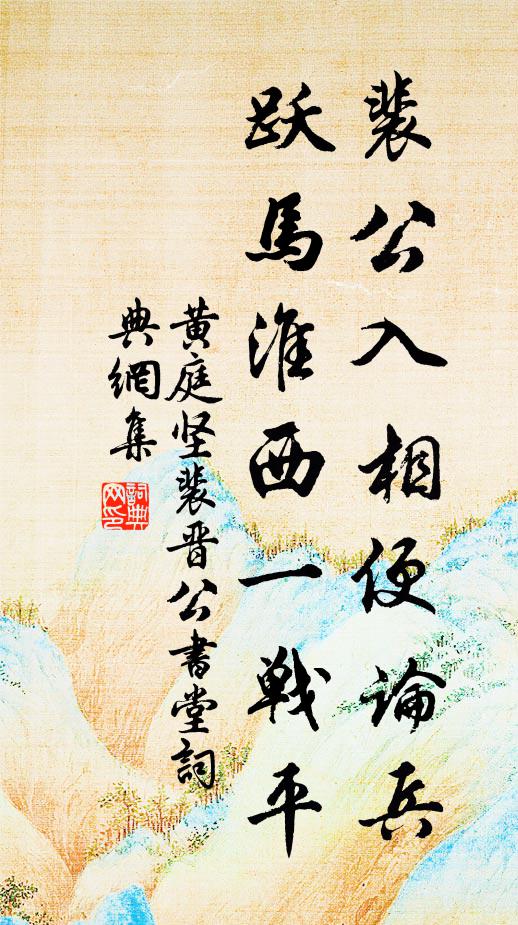 裴公入相便論兵
跃馬淮西一戰平
黄庭坚裴晋公書堂詞
典網集
詞典
网印